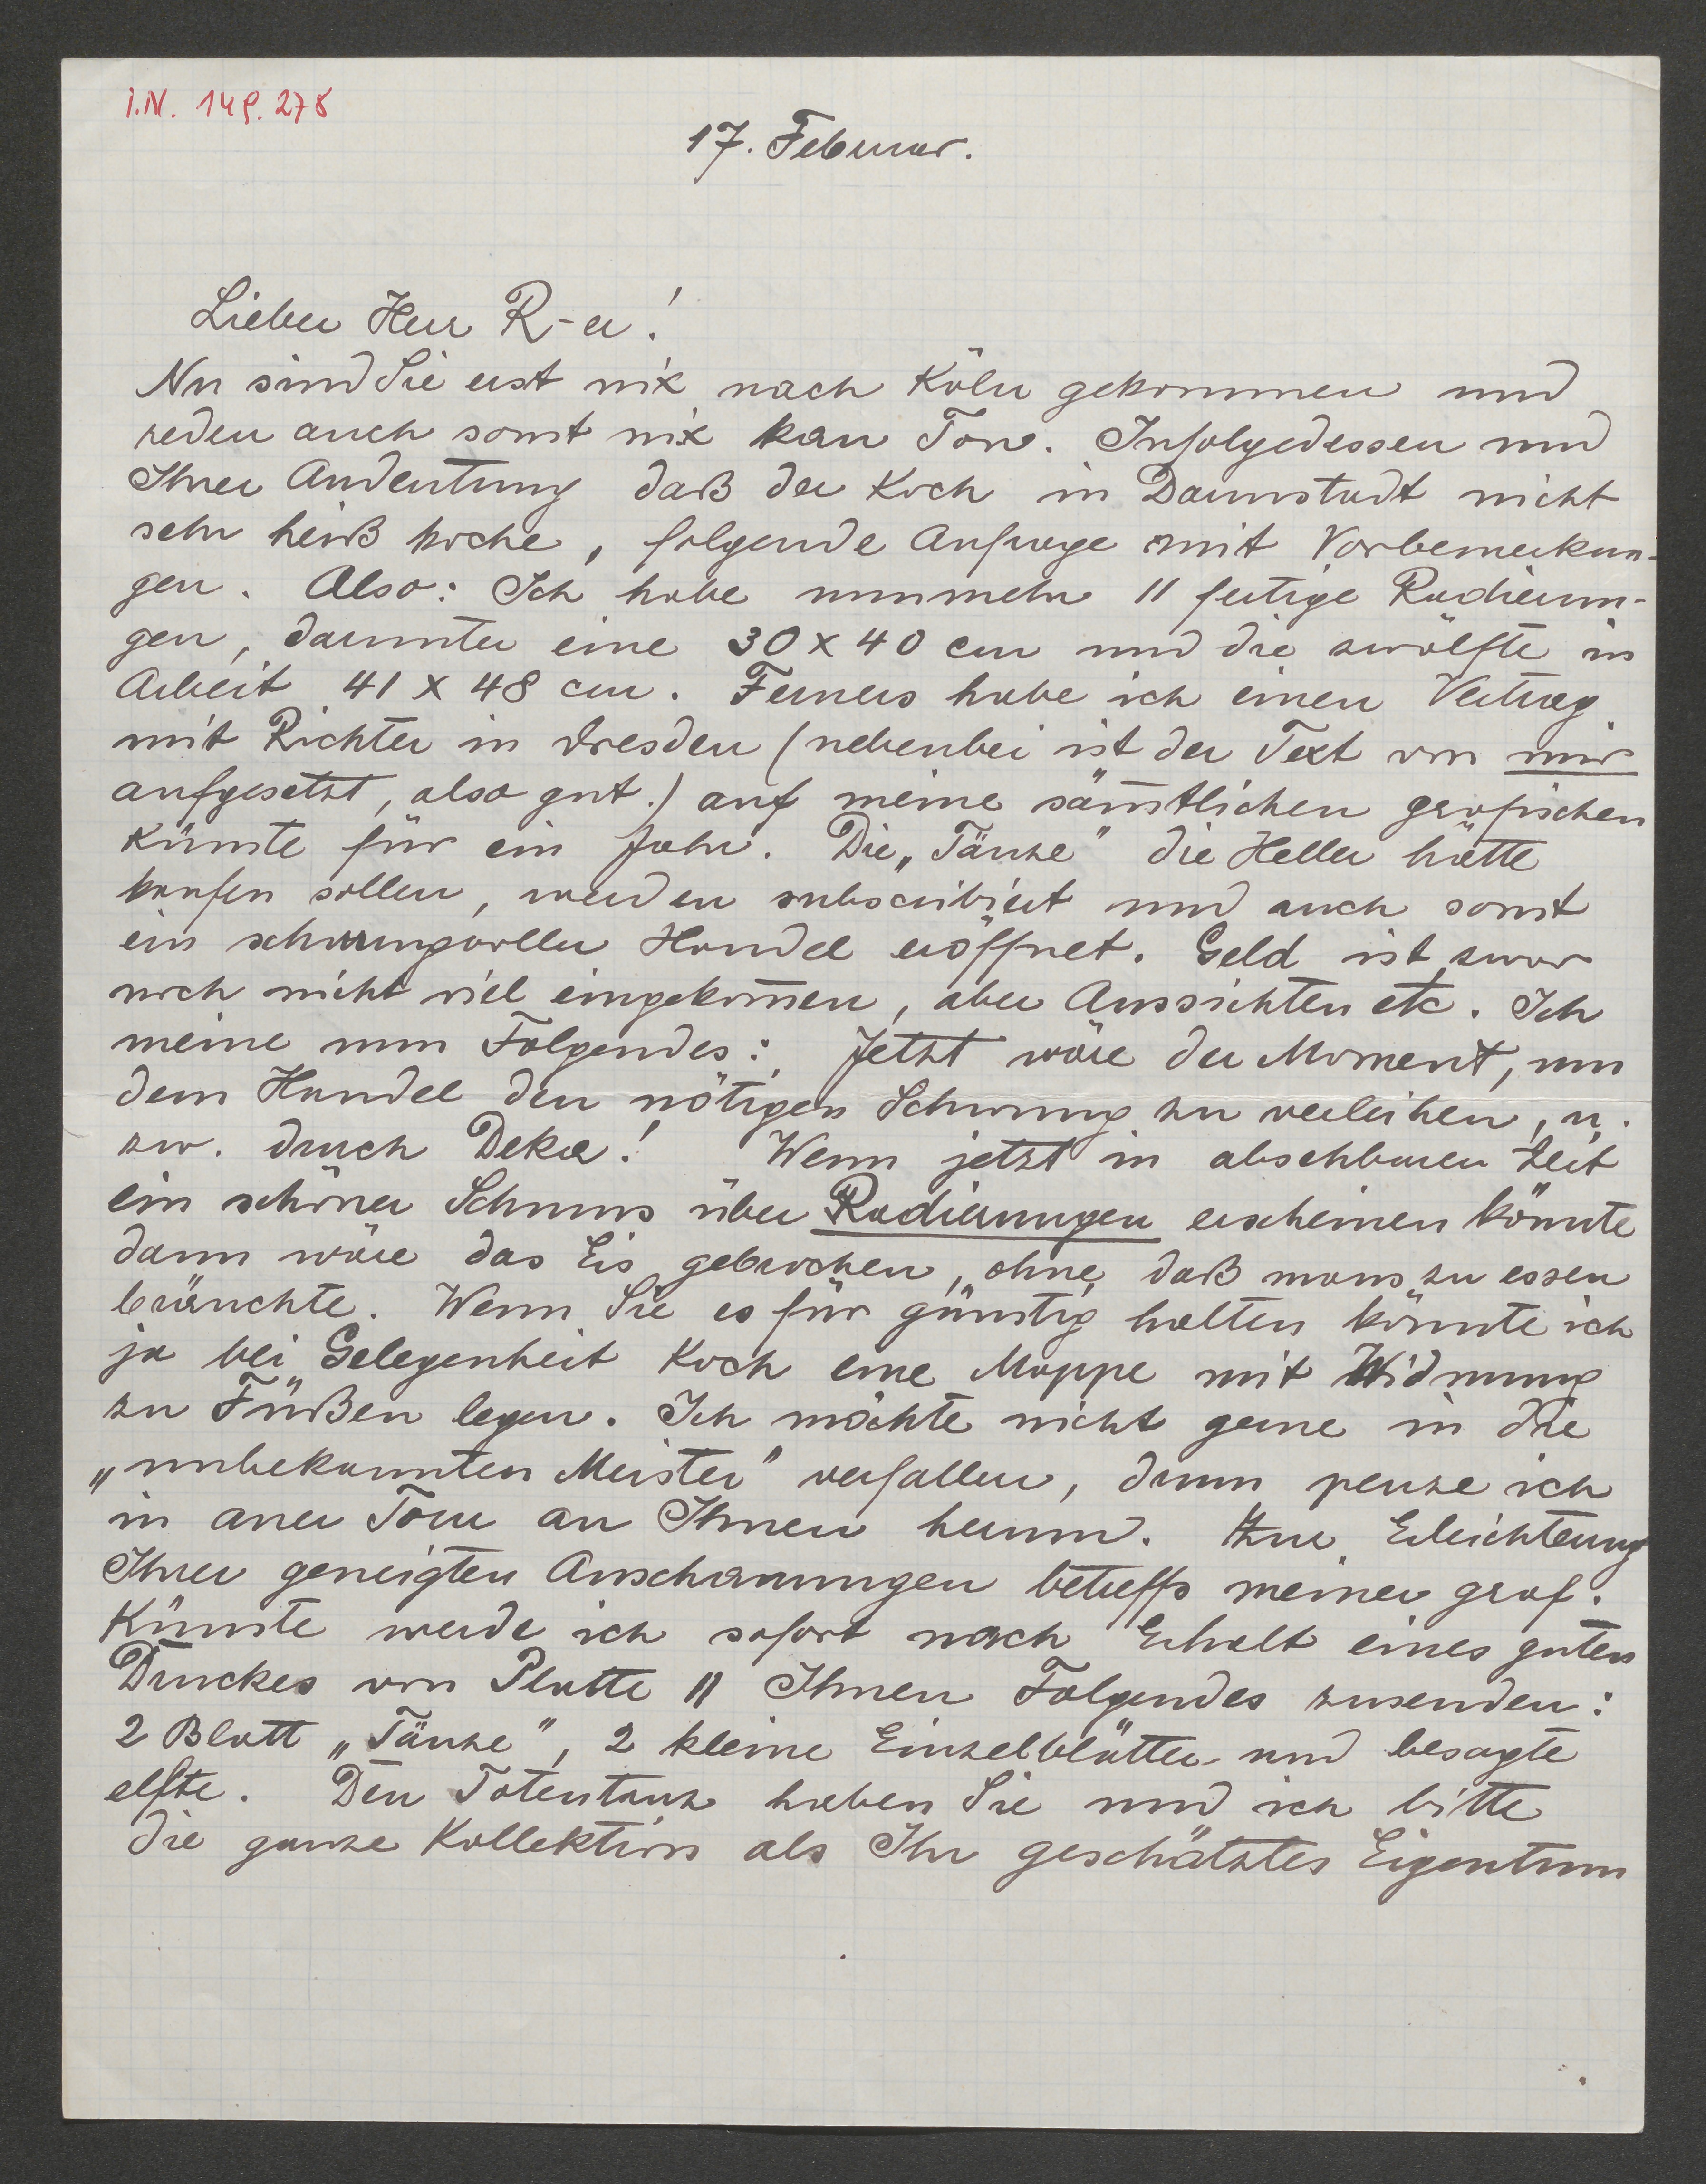 I.N. 149.278
17. Februar.
Lieber Herr R-er!
Nu sind Sie erst nix nach Köln gekommen und
reden auch sonst nix kan Ton. Infolgedessen und
Ihrer Andeutung daß der Koch in Darmstadt nicht
sehr heiß koche, folgende Anfrage mit Vorbemerkun-
gen. Also: Ich habe nunmehr 11 fertige Radierun-
gen, darunter eine 30 x 40 cm und die zwölfte in
Arbeit 41 x 48 cm. Ferners habe ich einen Vertrag
mit Richter in Dresden (nebenbei ist der Text von mir
aufgesetzt, also gut.) auf meine sämtlichen grafischen
Künste für ein Jahr. Die „Tänze" die Heller hätte
kaufen sollen, werden subscribiert und auch sonst
ein schwungvoller Handel eröffnet. Geld ist zwar
noch nicht viel eingekom̄en, aber Aussichten etc. Ich
meine nun Folgendes: Jetzt wäre der Moment, um
dem Handel den nötigen Schwung zu verleihen, u.
zw. druch Deka! Wenn jetzt in absehbarer Zeit
ein schöner Schmus über Radierungen erscheinen könnte
dann wäre das Eis gebrochen, „ohne" daß mans zu essen
bräuchte. Wenn Sie es für günstig halten könnte ich
ja bei Gelegenheit Koch eine Mappe mit Widmung
zu Füßen legen. Ich möchte nicht gerne in die
„unbekannten Meister" verfallen, drum penze ich
in aner Tour an Ihnen herum. Zur Erleichterung
Ihrer geneigten Anschauungen betreffs meiner graf.
Künste werde ich sofort nach Erhalt eines guten
Druckes von Platte 11 Ihnen Folgendes zusenden:
2 Blatt „Tänze", 2 kleine Einzelblätter und besagte
elfte. Den Totentanz haben Sie und ich bitte
die ganze Kollektion als Ihr geschätztes Eigentum